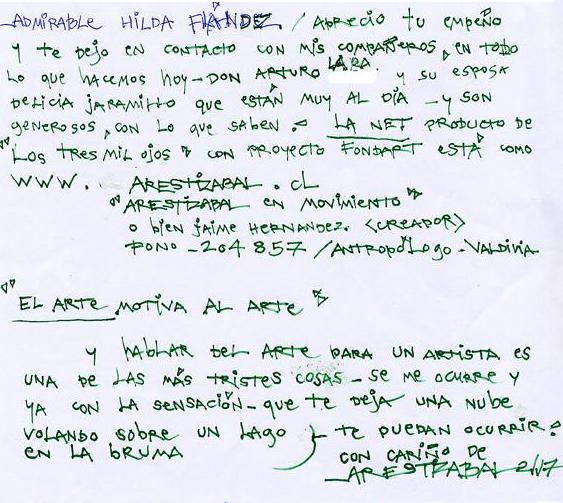 ADMIRABLE HILDA FLÁNDEZ. / APRECIO tu EMPEÑO
y te DEJO EN CONTACTO CON MIS COMPAÑEROS, EN TODO
LO QUE HACEMOS HOY - DON ARTURO LARA y SU ESPOSA
DELICIA JARAMILLO QUE ESTÁN MUY AL DÍA - y SON
GENEROSOS, CON LO QUE SABEN. LA NET PRODUCTO DE
"LOS TRES MIL OJOS" CON PROYECTO FONDART ESTÁ COMO
WWW. ARESTIZABAL.CL
"ARESTIZABAL EN MOVIMIENTO"
O BIEN JAIME HERNANDEZ. <CREADOR>
FONO - 204857 / ANTROPÓLOGO - VALDIVIA
"EL ARTE MOTIVA AL ARTE"
y HABLAR DEL ARTE PARA UN ARTISTA ES
UNA DE LAS MÁS TRISTES COSAS - SE ME OCURRE y
YA CON LA SENSACIÓN - QUE TE DEJA UNA NUBE
VOLANDO SOBRE UN LAGO } - TE PUEDAN OCURRIR!
EN LA BRUMA CON CARIÑO DE
ARESTIZABAL